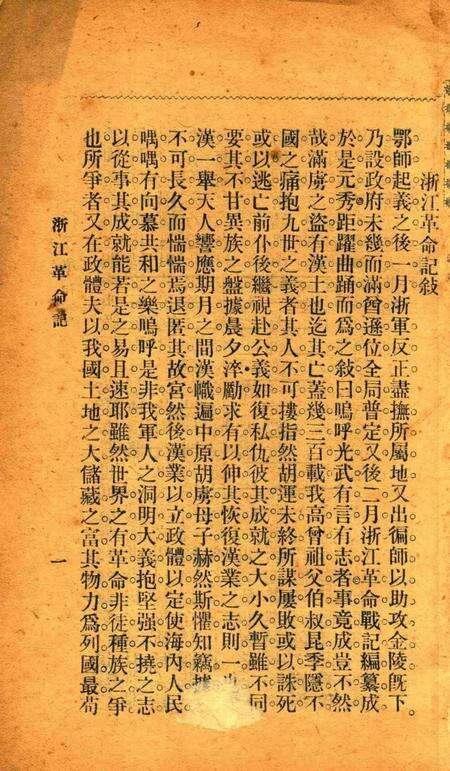 浙江革命記敍
鄂師起義之後一月浙軍反正盡撫所屬地又出徧師以助攻金陵旣下
乃設政府未幾而滿酋遜位全局普定又後二月浙江革命戰記編纂成
於是元秀距躍曲踊而爲之敍曰嗚呼光武有言有志者事竟成豈不然
哉滿虜之盜有漢土也迄其亡蓋幾三百載我高曾祖父伯叔昆季隱不
國之痛抱九世之義者其人不可摟指然胡運未終所謀屢敗或以誅死
或以逃亡前仆後繼視赴公義如復私仇彼其成就之大小久暫雖不同
要其不甘異族之盤據晨夕淬勵求有以伸其恢復漢業之志則一也
漢一舉天人響應期月之間漢幟遍中原胡虜母子赫然斯懼知竊據
不可長久而惴惴焉退匿其故宮然後漢業以立政體以定使海內人民
喁喁有向慕共和之樂嗚呼是非我軍人之洞明大義抱堅强不撓之志
以從事其成就能若是之易且速耶雖然世界之有革命非徒種族之爭
也所爭者又在政體夫以我國土地之大儲藏之富其物力爲列國最苟
浙江革命記
一